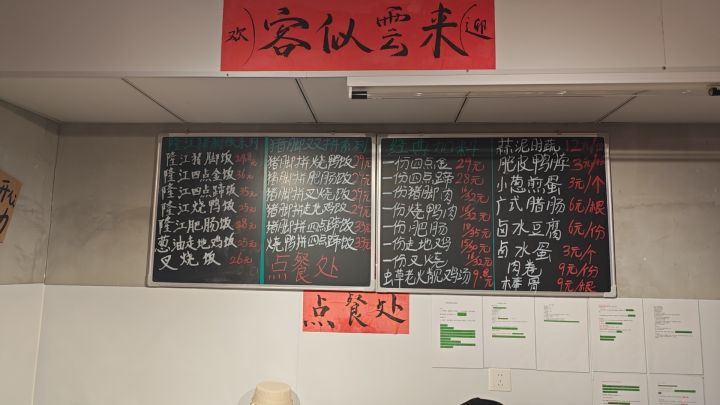 欢 客似雲来 迎
隆江猪脚饭系列
隆江猪脚饭
隆江四点金饭 36元
隆江四点蹄饭 35元
隆江烧鸭饭 25元
隆江肥肠饭
葱油走地鸡饭 25元
叉烧饭 26元
猪脚双拼系列
猪脚拼烧鸭饭 29元
猪脚拼肥肠饭 29元
猪脚拼叉烧饭 29元
猪脚拼走地鸡饭 29元
猪脚拼四点蹄饭 35元
烧鸭拼四点蹄饭 35元
点餐处
经典加料
一份四点金 29元
一份四点蹄 28元
一份猪脚肉 /32元
一份烧鸭肉 /32元
一份肥肠 /35元
一份走地鸡 /32元
一份叉烧 /32元
虫草老火靓鸡汤 9.9元
蒜泥时蔬 12元/份
脱皮鸭胗
小葱煎蛋 3元/个
广式腊肠 6元/根
卤水豆腐 6元/份
卤水蛋 3元/个
肉卷 9元/份
棒骨 9元/根
点餐处